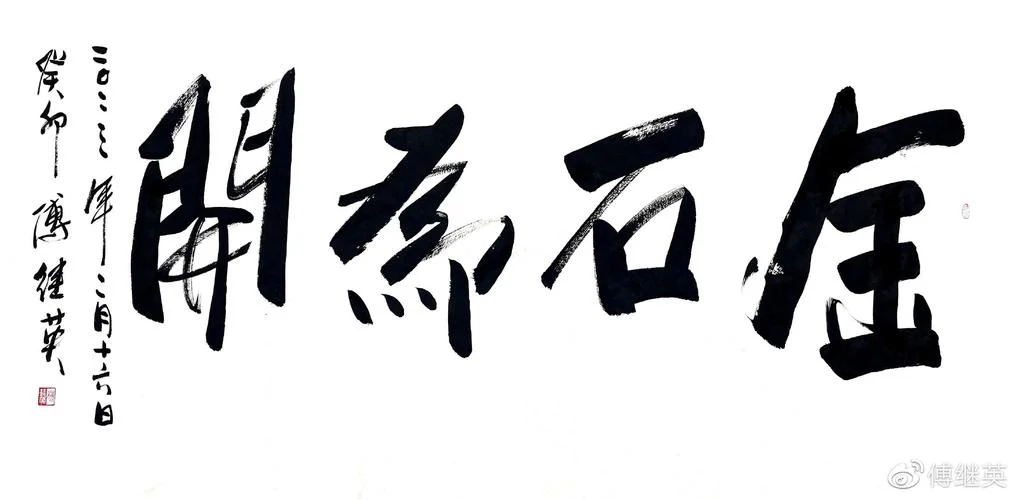 金石為開
二〇二三年二月十六日
癸卯 傅继英
傅继英